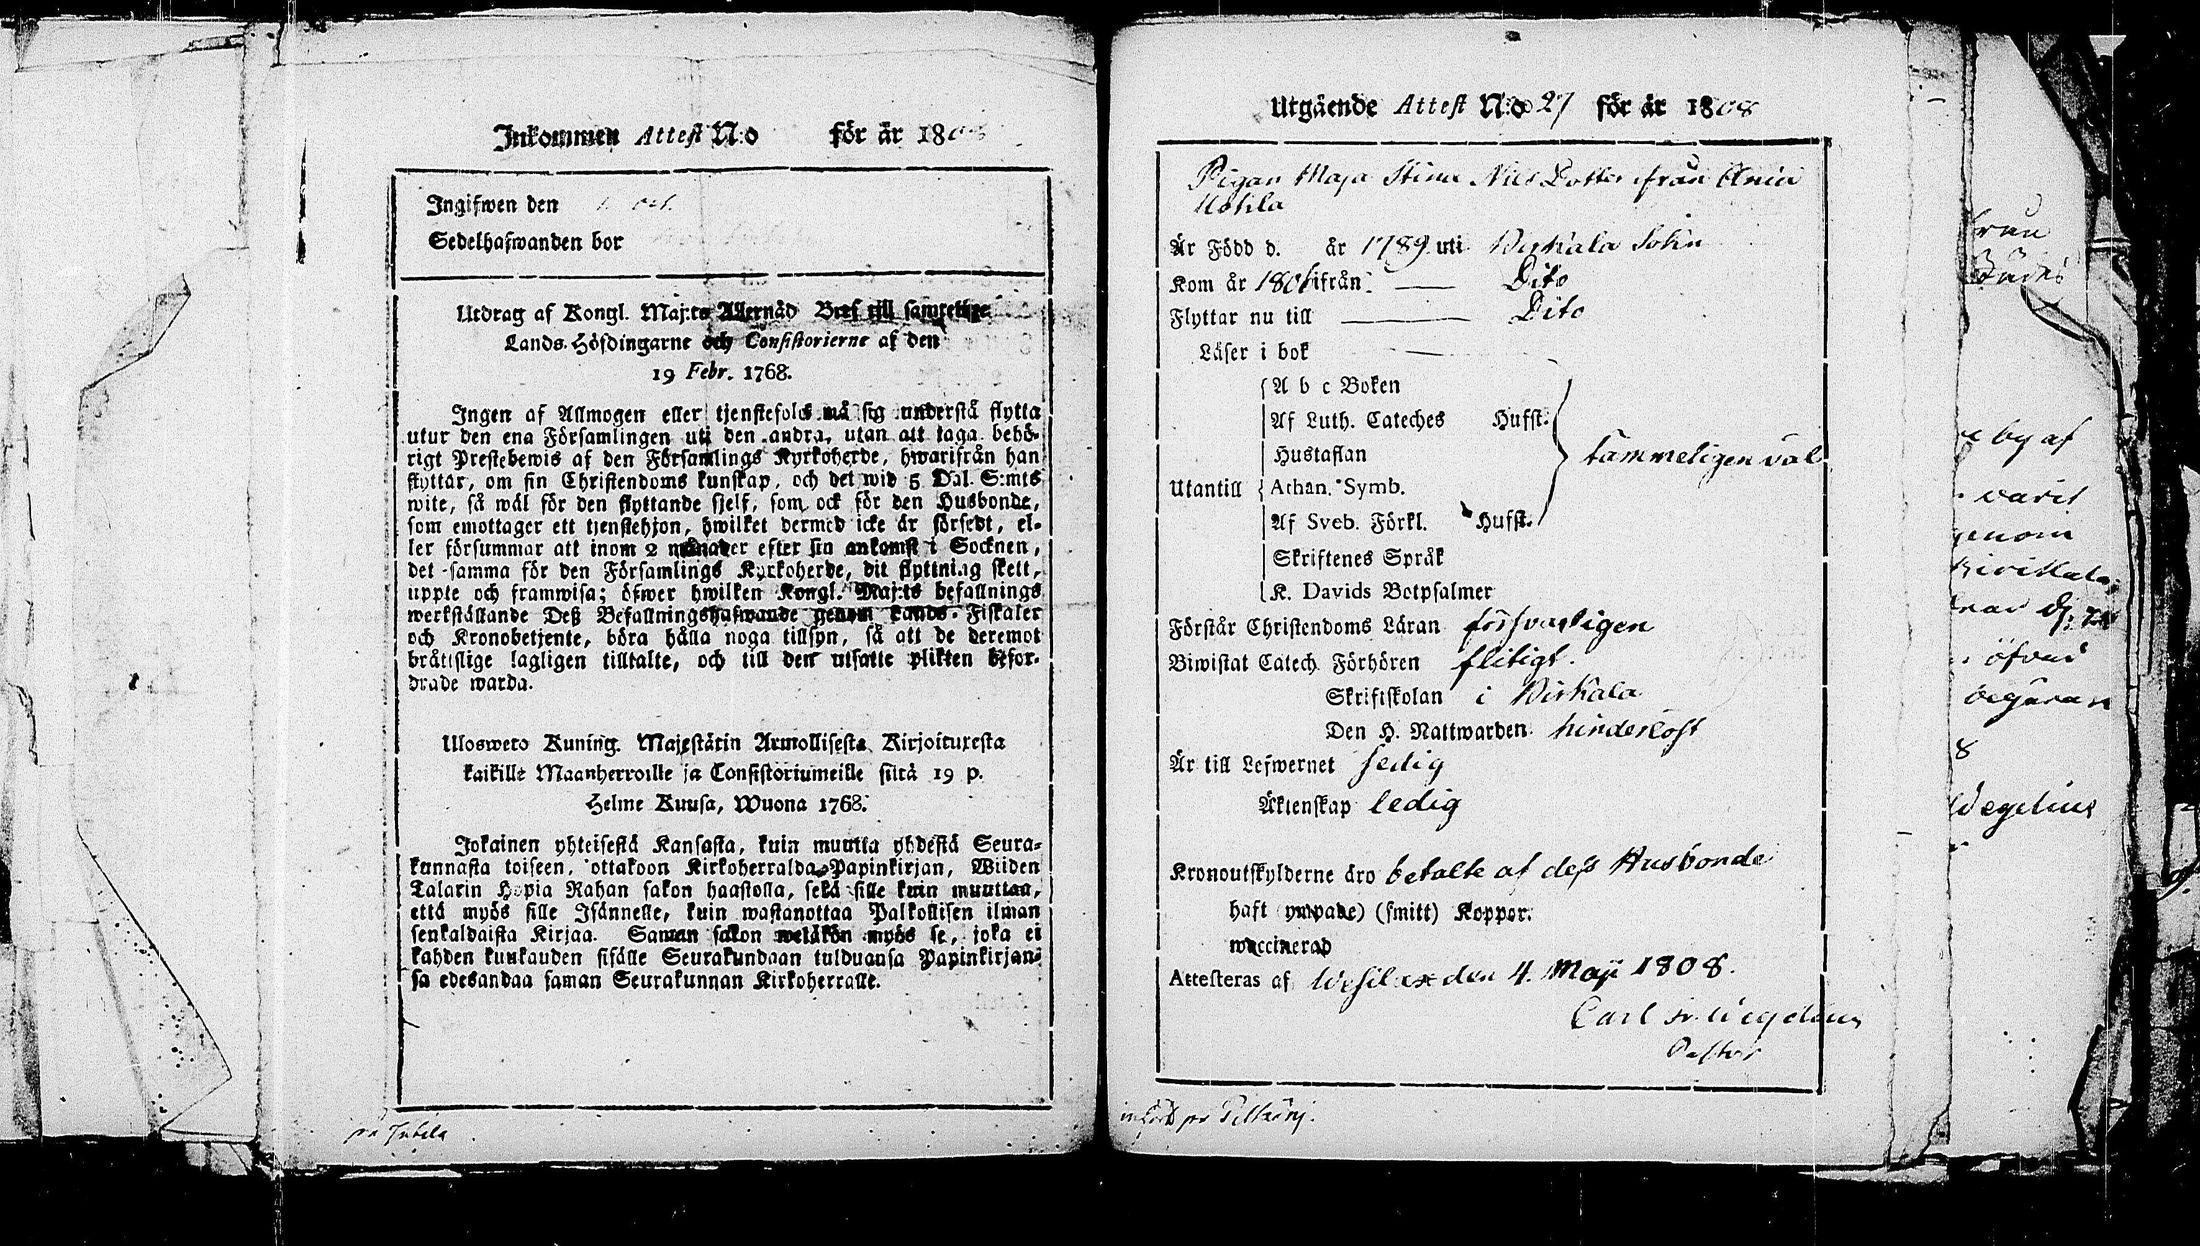 Inkommen Attest N:o för år 18
Ingifwen den 1. Oct.
Sedelhafwanden bor
Utdrag af Kongl. Maj:ts Allernåd Bref till samtelige
Lands-Höfdingarne och Consistorierne af den
19 Febr. 1768.
Ingen af Allmogen eller tjenstefolck må sig understå flytta
utur den ena Församlingen uti den andra, utan att taga behö-
rigt Prestebewis af den Församlings Kyrkoherde, hwarifrån han
flyttar, om sin Christendoms kunskap, och det wid 5 Dal. S:mts
wite, så wäl för den flyttande sjelf, som ock för den Husbonde,
som emottager ett tjenstehjon, hwilket dermed icke är försedt, el-
ler försummar att inom 2 månader efter sin ankomst i Socknen,
det samma för den Församlings Kyrkoherde, dit flyttning skett,
uppte och framwisa; öfwer hwilken Kongl. Maj:ts befallnings
werkställande Deß Befallningshafwande genom Lands-Fiskaler
och Kronobetjente, böra hålla noga tillsyn, så att de deremot
bråttslige lagligen tilltalte, och till den utsatte plikten befor-
drade warda.
Uloswetο Kuning. Majestätin Armollisesta Kirjoituxesta
kaikille Maanherroille ja Consistoriumeille siltä 19 p.
Helme Kuusa, Wuona 1768.
Jokainen yhteisestä Kansasta, kuin muutta yhdestä Seura-
kunnasta toiseen, ottakoon Kirkoherralda Papinkirjan, Wiiden
Talarin Hopia Rahan sakon haastolla, sekä sille kuin muuttaa,
että myös sille Isännelle, kuin wastanottaa Palkollisen ilman
senkaldaista Kirjaa. Saman sakon weläkön myös se, joka ei
kahden kuukauden sisälle Seurakundaan tulduansa Papinkirjan-
sa edesandaa saman Seurakunnan Kirkoherralle.
på Jutila
Utgående Attest N:o 27 för år 1808
Pigan Maja Stina Nils Dotter från
Uotila
Är Född d. år 1789 uti Birkala Sokn
Kom år 1806 ifrån — Dito
Flyttar nu till — Dito
Läser i bok —
A b c Boken
Af Luth. Cateches Hufst.
Hustaflan
tämmeligen väl
Utantill Athan. Symb.
Af Sveb. Förkl. Hufst.
Skriftenes Språk
K. Davids Botpsalmer
Förstår Christendoms Läran försvarligen
Biwistat Catech. Förhören flitigt.
Skriftskolan i Birkala
Den H. Nattwarden hinderlöst
Är till Lefwernet sedig
Äktenskap ledig
Kronoutskylderne äro betalte af deß Husbonde
haft (ympade) (smitt) Koppor.
waccinerad
Attesteras af Wesilax den 4. Maji 1808.
Carl Fr. Wegelius
Pastor
run
e by af
varit
genom
Birkkala
öfver
begäran
8
Wegelius